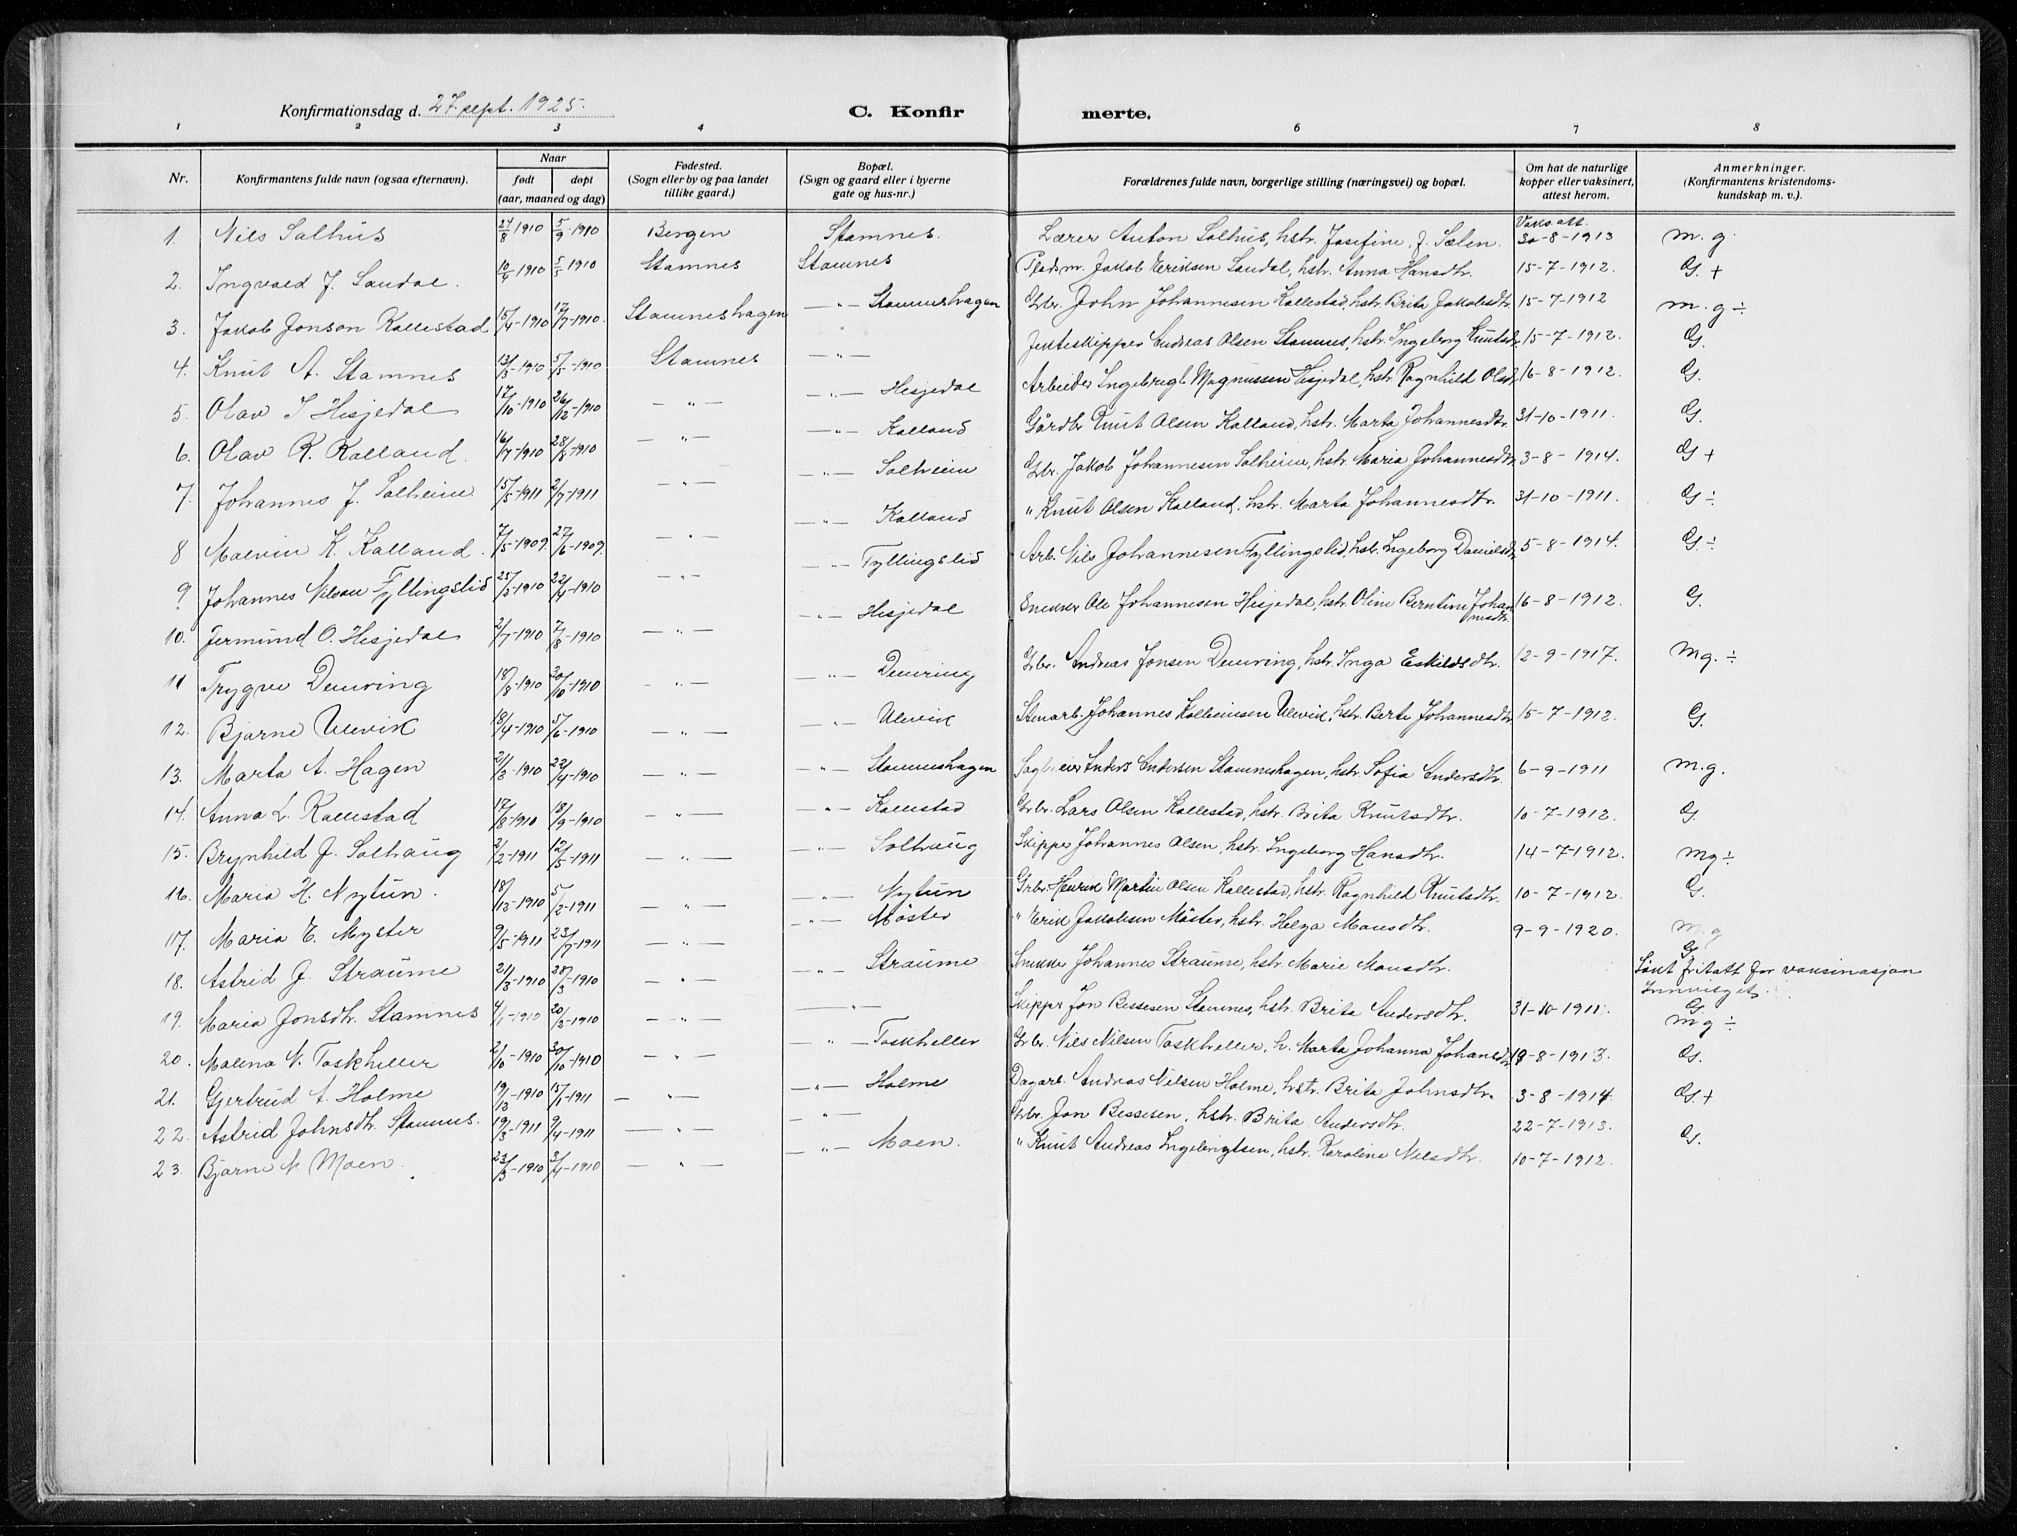 Konfirmationsdag d. 27. sept. 1925. C. Konfir merte.
1 2 3 4 6 7 8
Nr. Konfirmantens fulde navn (ogsaa efternavn). Naar født døpt (aar, maaned og dag) Fødested. (Sogn eller by og paa landet tillike gaard.) Bopæl. (Sogn og gaard eller i byerne gate og hus-nr.) Forældrenes fulde navn, borgerlige stilling (næringsvei) og bopæl. Om hat de naturlige kopper eller vaksinert, attest herom. Anmerkninger. (Konfirmantens kristendomskundskap m. v.).
1. Nils Solhus 24/8 1910 5/9 1910 Bergen Stamnes. Lærer Anton Solhus, hstr. Josefine f. Sælen. Vaks. att. 30-8-1913 m. g.
2. Ingvald J. Sandal. 10/4 1910 5/5 1910 Stamnes Stamnes Pladsm. Jakob Eriksen Sandal, hstr. Anna Hansdtr. 15-7-1912. G. +
3. Jakob Jonson Kallestad 15/4-1910 17/7-1910. Stamneshagen —"— Stamneshagen Gbr. John Johannesen Kallestad, hstr. Brita Jakobsdtr. 15-7-1912 m. g ÷
4. Knut A. Stamnes 13/3-1910 5/5-1910 Stamnes —"— Jekteskipper Andreas Olsen Stamnes, hstr. Ingeborg Knutsdtr. 15-7-1912. G.
5. Olav I Hesjedal 17/10-1910 26/12-1910 —"— —"— Hesjedal Arbeider Ingebrigt Magnussen Hesjedal, hstr. Ragnhild Olsdtr. 16-8-1912. G.
6. Olav K. Kalland. 16/7-1910 28/8-1910 —"— —"— Kalland Gårdbr. Knut Olsen Kalland, hstr. Marta Johannesdtr. 31-10-1911. G.
7. Johannes J. Solheim 15/5-1911 2/7-1911 —"— —"— Solheim Gbr. Jakob Johannesen Solheim, hstr. Maria Johannesdtr. 3-8-1914. G +
8 Malvin K. Kalland. 7/5-1909. 27/6-1909. —"— —"— Kalland " Knut Olsen Kalland, hstr. Marta Johannesdtr. 31-10-1911. G ÷
9 Johannes Nilsen Fyllingslid 25/3-1910 22/4-1910 —"— —"— Fyllingslid Arb. Nils Johannesen Fyllingslid, hstr. Ingeborg Danielsdtr. 5-8-1914. G ÷
10. Jermund O. Hesjedal 2/7-1910 7/8-1910 —"— —"— Hesjedal Snekker Ole Johannesen Hesjedal, hstr. Oline Berntine Johannesdtr. 16-8-1912. G.
11 Trygve Demring 18/8-1910 20/10-1910 —"— —"— Demring Gbr. Andreas Jonsen Demring, hstr. Inga Eskildsdtr. 12-9-1917. Mg. ÷
12. Bjarne Ulevik 18/4-1910 5/6-1910 —"— —"— Ulevik Stenarb. Johannes Kolbeinsen Ulevik, hstr. Berte Johannesdtr. 15-7-1912. G.
13. Marta A. Hagen 21/3-1910 22/4-1910 —"— —"— Stamneshagen Sagbr.eier Anders Andersen Stamneshagen, hstr. Sofia Andersdtr. 6-9-1911 m.g.
14. Anna L. Kallestad 17/8-1910 18/9-1910 —"— —"— Kallestad Gbr. Lars Olsen Kallestad, hstr. Brita Knutsdtr. 10-7-1912. G.
15. Brynhild J. Solhaug 2/2-1911 12/5-1911 —"— —"— Solhaug Skipper Johannes Olsen, hstr. Ingeborg Hansdtr. 14-7-1912. mg ÷
16. Maria H. Nytun. 18/12-1910 5/2-1911 —"— —"— Nytun Grbr. Henrik Martin Olsen Kallestad, hstr. Ragnhild Knutsdtr. 10-7-1912. G.
17. Maria E. Myster 9/5-1911 23/7-1911 —"— —"— Möster " Erik Jakobsen Möster, hstr. Helga Monsdtr. 9-9-1920. m. g
18. Astrid J. Straume 21/3-1910 28/3-1910 —"— —"— Straume Snekker Johannes Straume, hstr. Marie Monsdtr. G. Sökt fritatt for vaksinasjon Innvilget.
19. Maria Jonsdtr. Stamnes 4/1-1910 20/3-1910 —"— —"— Skipper Jon Bessesen Stamnes, hstr. Brita Andersdtr. 31-10-1911. G.
20. Malena N. Toskheller 2/10-1910 30/10-1910 —"— —"— Toskheller Gbr. Nils Nilsen Toskheller, h. Marta Johanna Johansdtr. 18-8-1913. mg ÷
21. Gjertrud A. Holme 19/12-1910 15/1-1911 —"— —"— Holme Dagarb. Andreas Nilsen Holme, hstr. Brita Johnsdtr. 3-8-1914 G.
22. Astrid Johnsdtr. Stamnes. 19/3-1911 9/4-1911 —"— —"— Gbr. Jon Bessesen, hstr. Brita Andersdtr. 22-7-1913. G +
23. Bjarne K. Moen. 23/3-1910 3/4-1910 —"— —"— Moen. " Knut Andreas Ingebrigtsen, hstr. Karoline Nilsdtr. 10-7-1912. G.